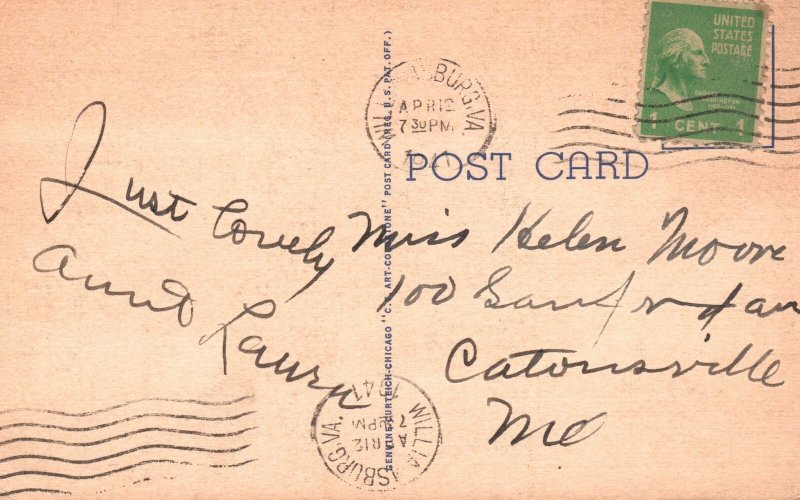 UNITED
STATES
POSTAGE
1 CENT 1
WILLIAMSBURG, VA.
APR 12
7 30 PM
POST CARD
GENUINE CURTEICH-CHICAGO "C.T. ART-COLORTONE" POST CARD (REG. U.S. PAT. OFF.)
Just lovely
Aunt Laura
Miss Helen Moore
100
Catonsville
Md
WILLIAMSBURG, VA.
APR 12
7 PM
1941